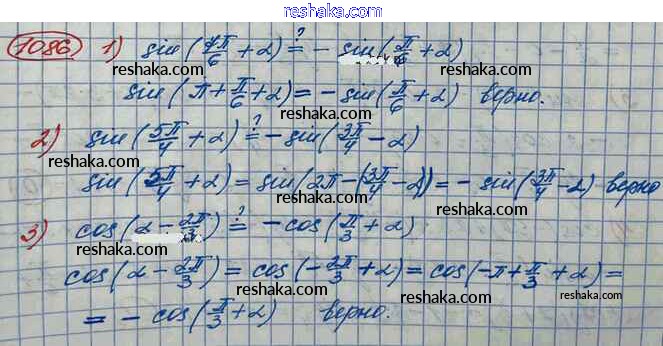 reshaka.com
1086 1) sin(7π/6 + α) ≟ - sin(π/6 + α)
reshaka.com reshaka.com
sin(π + π/6 + α) = - sin(π/6 + α) верно.
reshaka.com reshaka.com
2) sin(5π/4 + α) ≟ - sin(3π/4 - α)
reshaka.com
sin(5π/4 + α) = sin(2π - (3π/4 - α)) = - sin(3π/4 - α) верно
reshaka.com reshaka.com
3) cos(α - 2π/3) ≟ - cos(π/3 + α)
reshaka.com reshaka.com
cos(α - 2π/3) = cos(-2π/3 + α) = cos(-π + π/3 + α) =
reshaka.com reshaka.com
= - cos(π/3 + α) верно.
reshaka.com reshaka.com